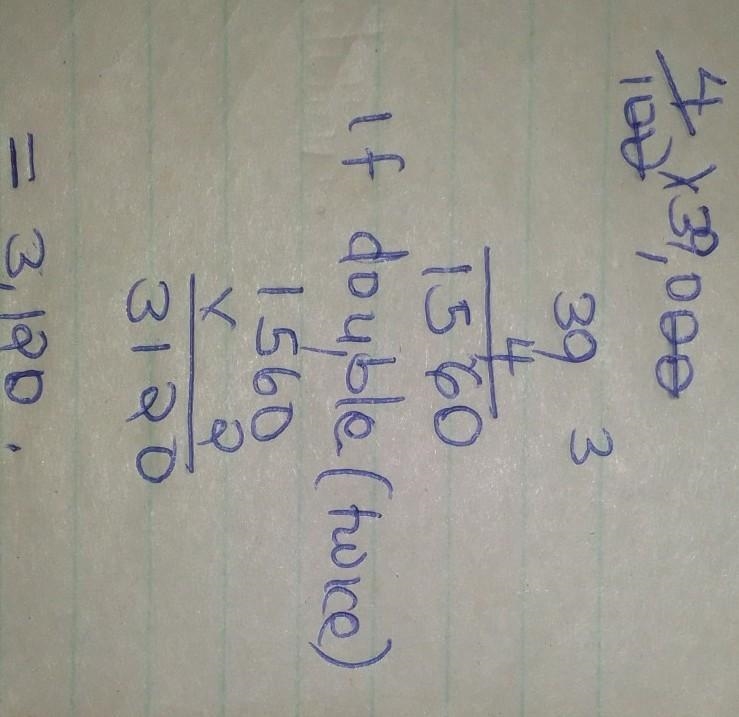 4
100 × 39,000
39 3
4
1560
If double (twice)
1,560
× 2
3120
= 3,120.